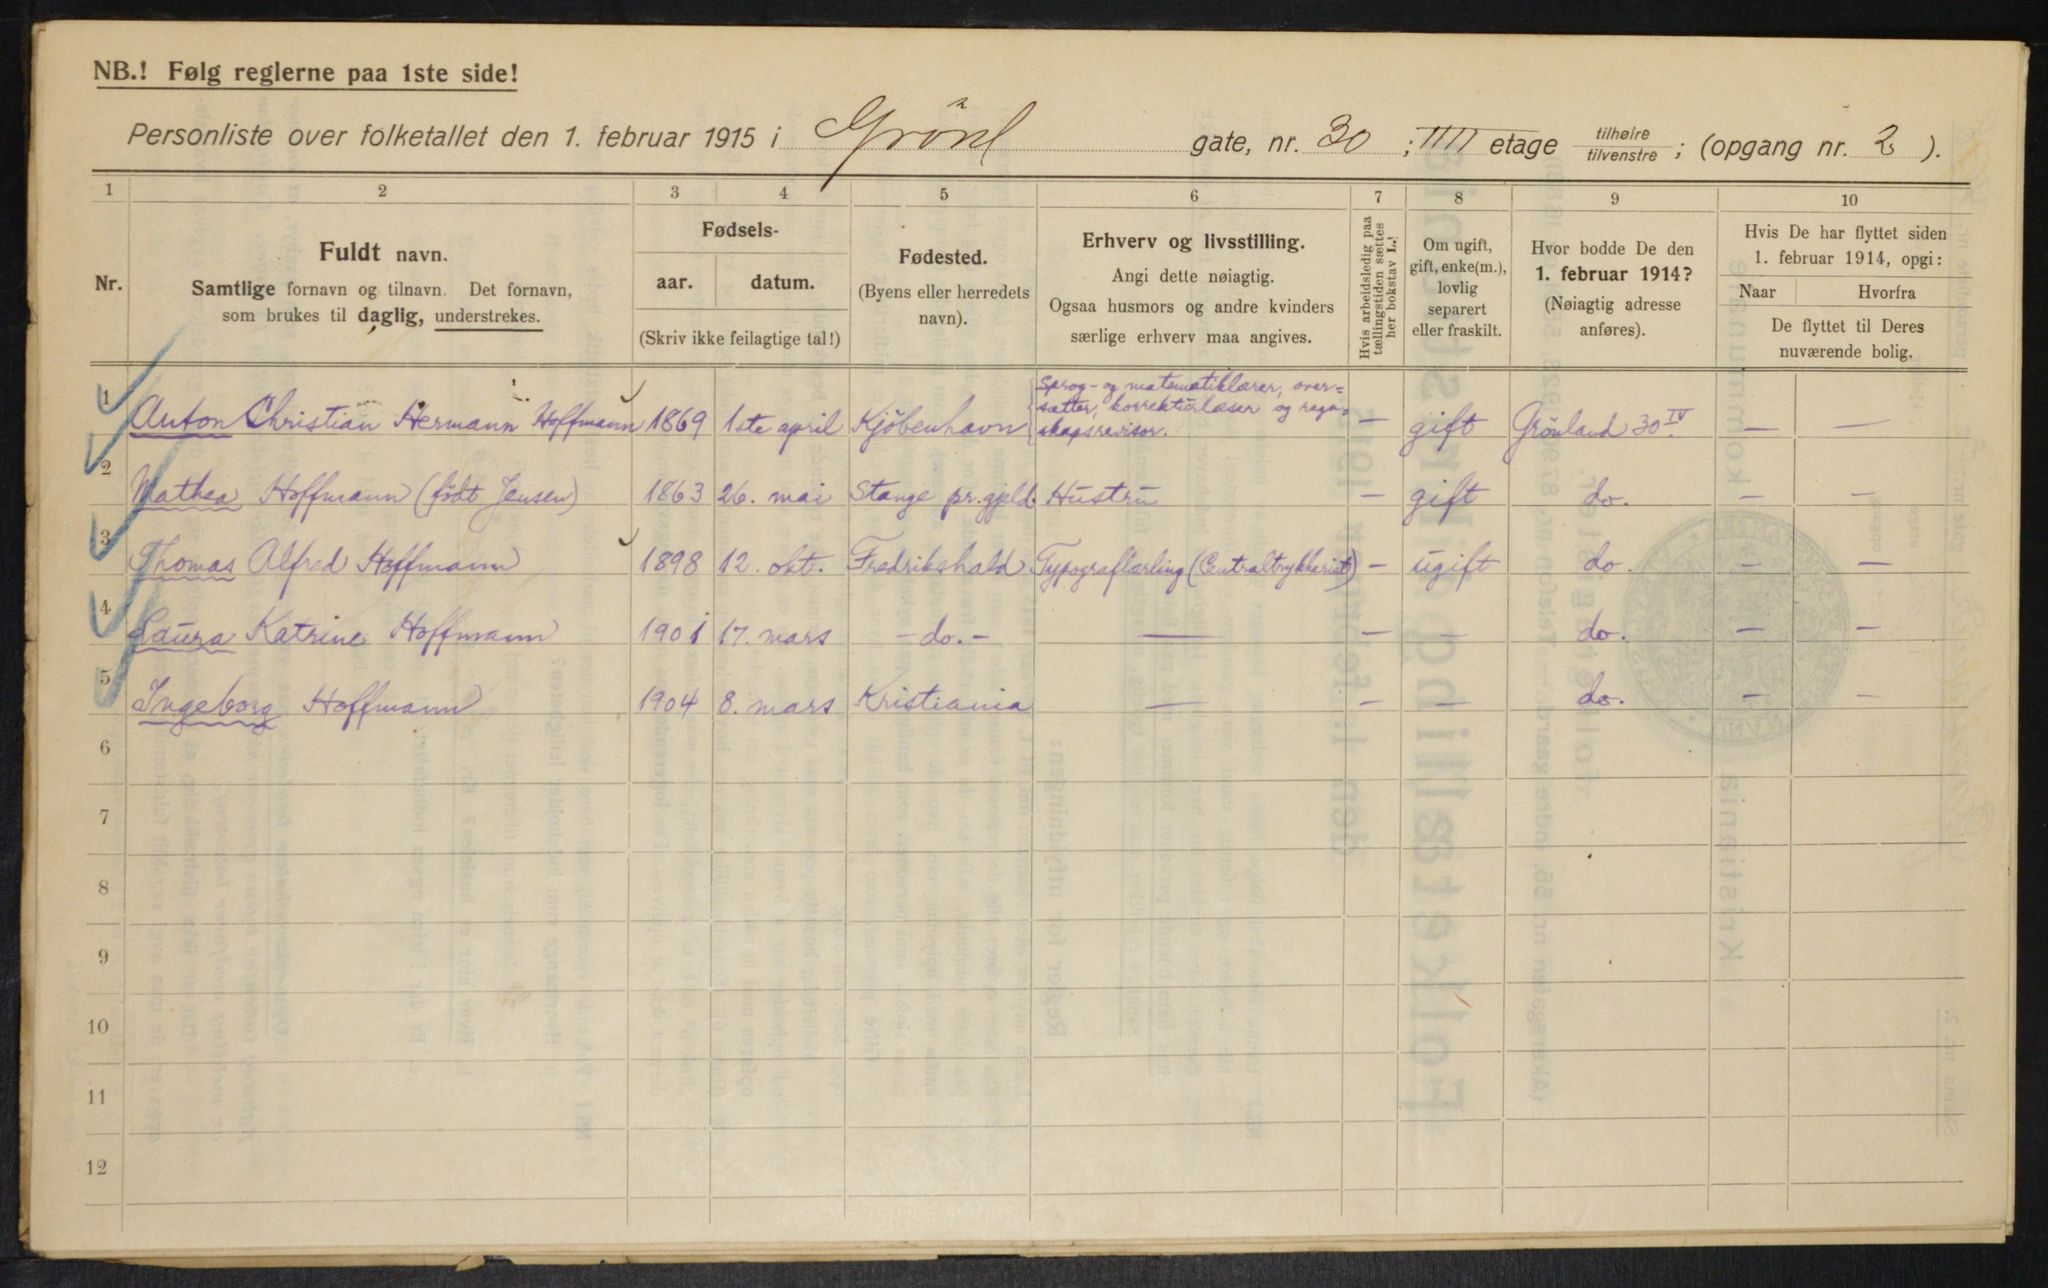 NB.! Følg reglerne paa 1ste side!
Personliste over folketallet den 1. februar 1915 i Grönl gate, nr. 30 ; IIII etage tilhøire tilvenstre ; (opgang nr. 2 ).
1 2 3 4 5 6 7 8 9 10
Nr.
Fuldt navn.
Samtlige fornavn og tilnavn. Det fornavn,
som brukes til daglig, understrekes.
Fødsels-
aar. datum.
(Skriv ikke feilagtige tal!)
Fødested.
(Byens eller herredets
navn).
Erhverv og livsstilling.
Angi dette nøiagtig.
Ogsaa husmors og andre kvinders
særlige erhverv maa angives.
Hvis arbeidsledig paa
tællingstiden sættes
her bokstav L.!
Om ugift,
gift, enke(m.),
lovlig
separert
eller fraskilt.
Hvor bodde De den
1. februar 1914?
(Nøiagtig adresse
anføres).
Hvis De har flyttet siden
1. februar 1914, opgi:
Naar Hvorfra
De flyttet til Deres
nuværende bolig.
1 Anton Christian Hermann Hoffmann 1869 1ste april Kjöbenhavn Sprog- og matematiklærer, over=
sætter, korrekturlæser og regn=
skapsrevisor. — gift Grönland 30 IV. — —
2 Mathea Hoffmann (födt Jensen) 1863 26. mai Stange pr.gjeld. Hustru — gift do. — —
3 Thomas Alfred Hoffmann 1898 12. okt. Fredrikshald Typograflærling (Centraltrykkeriet) — ugift do. — —
4 Laura Katrine Hoffmann 1901 17. mars — do. — — — — do. — —
5 Ingeborg Hoffmann 1904 8. mars Kristiania — — — do. — —
6
7
8
9
10
11
12